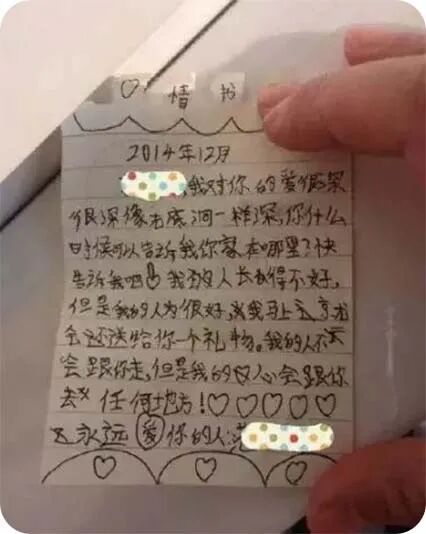 ♡ 情书
2014年12月
,我对你的爱很深
很深像无底洞一样深,你什么
时候可以告诉我你家在哪里?快
告诉我吧!我的人长的得不好,
但是我的人为很好,我马上
会还送给你一个礼物。我的人不
会跟你走,但是我的心会跟你
去 任何地方!♡♡♡♡♡
永远爱你的人: